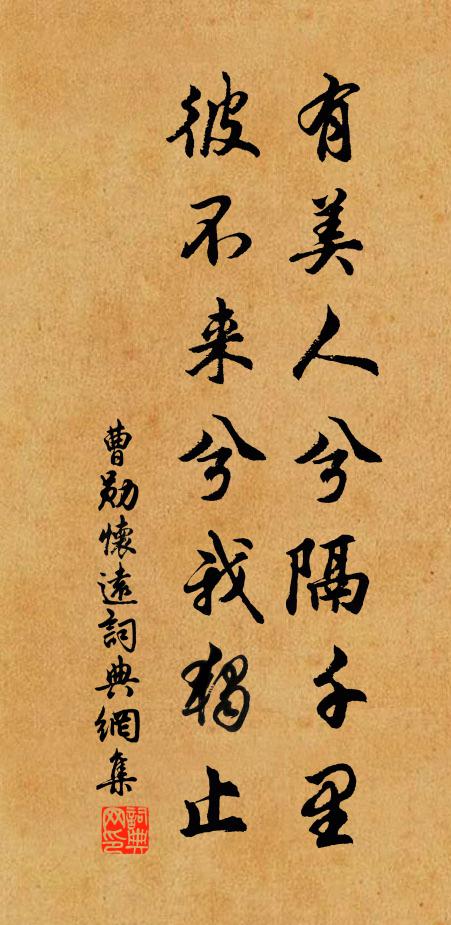 有美人兮隔千里
彼不来兮我獨止
曹勛懷遠詞典網集
詞典网印